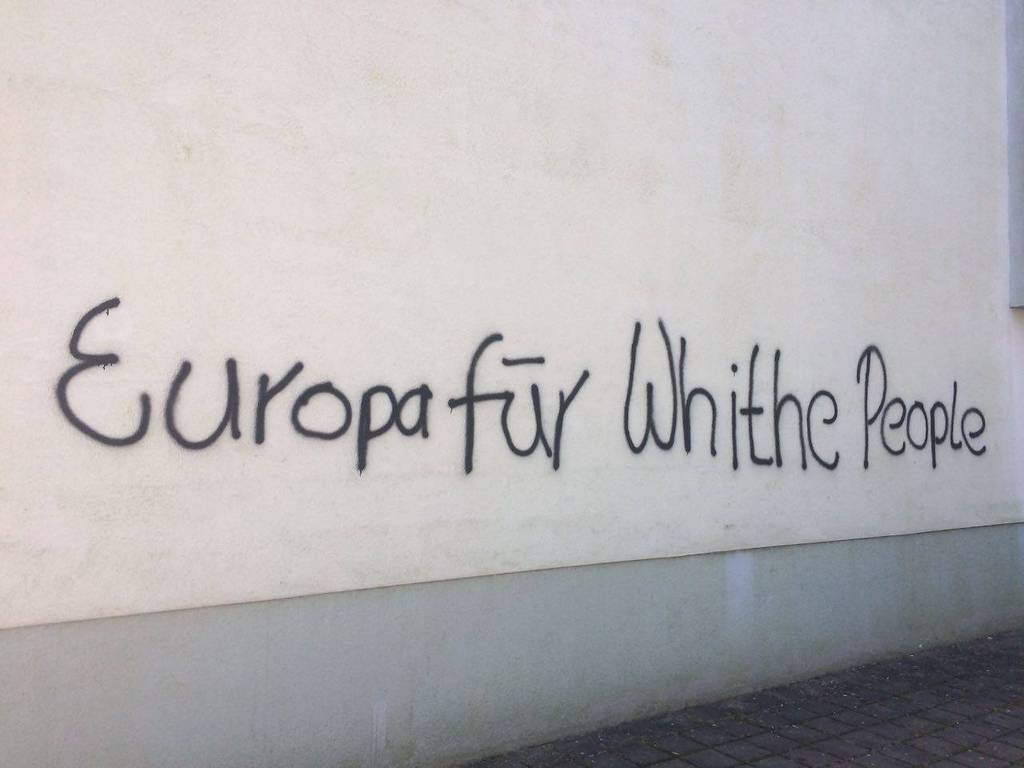 Europa für Whithe People